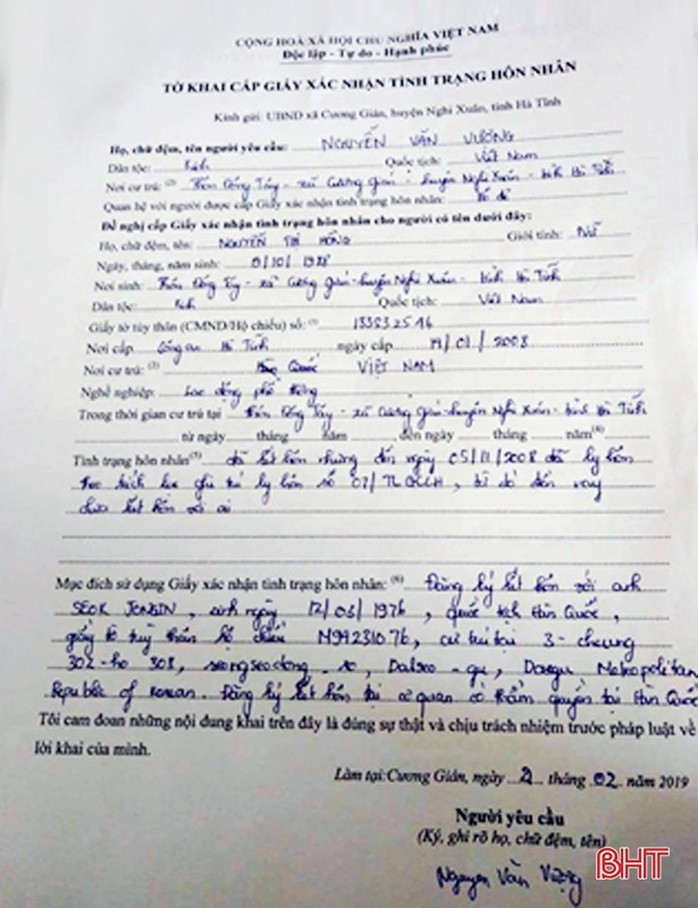 CỘNG HOÀ XÃ HỘI CHỦ NGHĨA VIỆT NAM
Độc lập - Tự do - Hạnh phúc
TỜ KHAI CẤP GIẤY XÁC NHẬN TÌNH TRẠNG HÔN NHÂN
Kính gửi: UBND xã Cương Gián, huyện Nghi Xuân, tỉnh Hà Tĩnh
Họ, chữ đệm, tên người yêu cầu: NGUYỄN VĂN VƯỢNG
Dân tộc: Kinh Quốc tịch: Việt Nam
Nơi cư trú: (2) Thôn Đông Tây - xã Cương Gián - huyện Nghi Xuân - tỉnh Hà Tĩnh
Quan hệ với người được cấp Giấy xác nhận tình trạng hôn nhân:
Đề nghị cấp Giấy xác nhận tình trạng hôn nhân cho người có tên dưới đây:
Họ, chữ đệm, tên: NGUYỄN THỊ HỒNG Giới tính: Nữ
Ngày, tháng, năm sinh: /10/1978
Nơi sinh: Thôn Đông Tây - xã Cương Gián - huyện Nghi Xuân - tỉnh Hà Tĩnh
Dân tộc: Kinh Quốc tịch: Việt Nam
Giấy tờ tùy thân (CMND/Hộ chiếu) số:
Nơi cấp Công an Hà Tĩnh ngày cấp /01/2008
Nơi cư trú: (2) Hàn Quốc VIỆT NAM
Nghề nghiệp: Lao động phổ thông
Trong thời gian cư trú tại Thôn Đông Tây - xã Cương Gián - huyện Nghi Xuân - tỉnh Hà Tĩnh
từ ngày tháng năm đến ngày tháng năm (4)
Tình trạng hôn nhân (5) đã kết hôn nhưng đến ngày 05/11/2008 đã ly hôn
theo trích lục ghi chú ly hôn số 07/TLGCLH, từ đó đến nay
chưa kết hôn với ai
Mục đích sử dụng Giấy xác nhận tình trạng hôn nhân: (6) Đăng ký kết hôn với anh
SEOK JONGIN, sinh ngày 12/03/1976, quốc tịch Hàn Quốc,
giấy tờ tuỳ thân hộ chiếu M94231076, cư trú tại 3-cheung
302-ho 308, seongseodong-ro, Dalseo-gu, Daegu Metropolitan,
Republic of Korean. Đăng ký kết hôn tại cơ quan có thẩm quyền tại Hàn Quốc
Tôi cam đoan những nội dung khai trên đây là đúng sự thật và chịu trách nhiệm trước pháp luật về
lời khai của mình.
Làm tại: Cương Gián, ngày 21 tháng 02 năm 2019
Người yêu cầu
(Ký, ghi rõ họ, chữ đệm, tên)
Nguyễn Văn Vượng
BHT